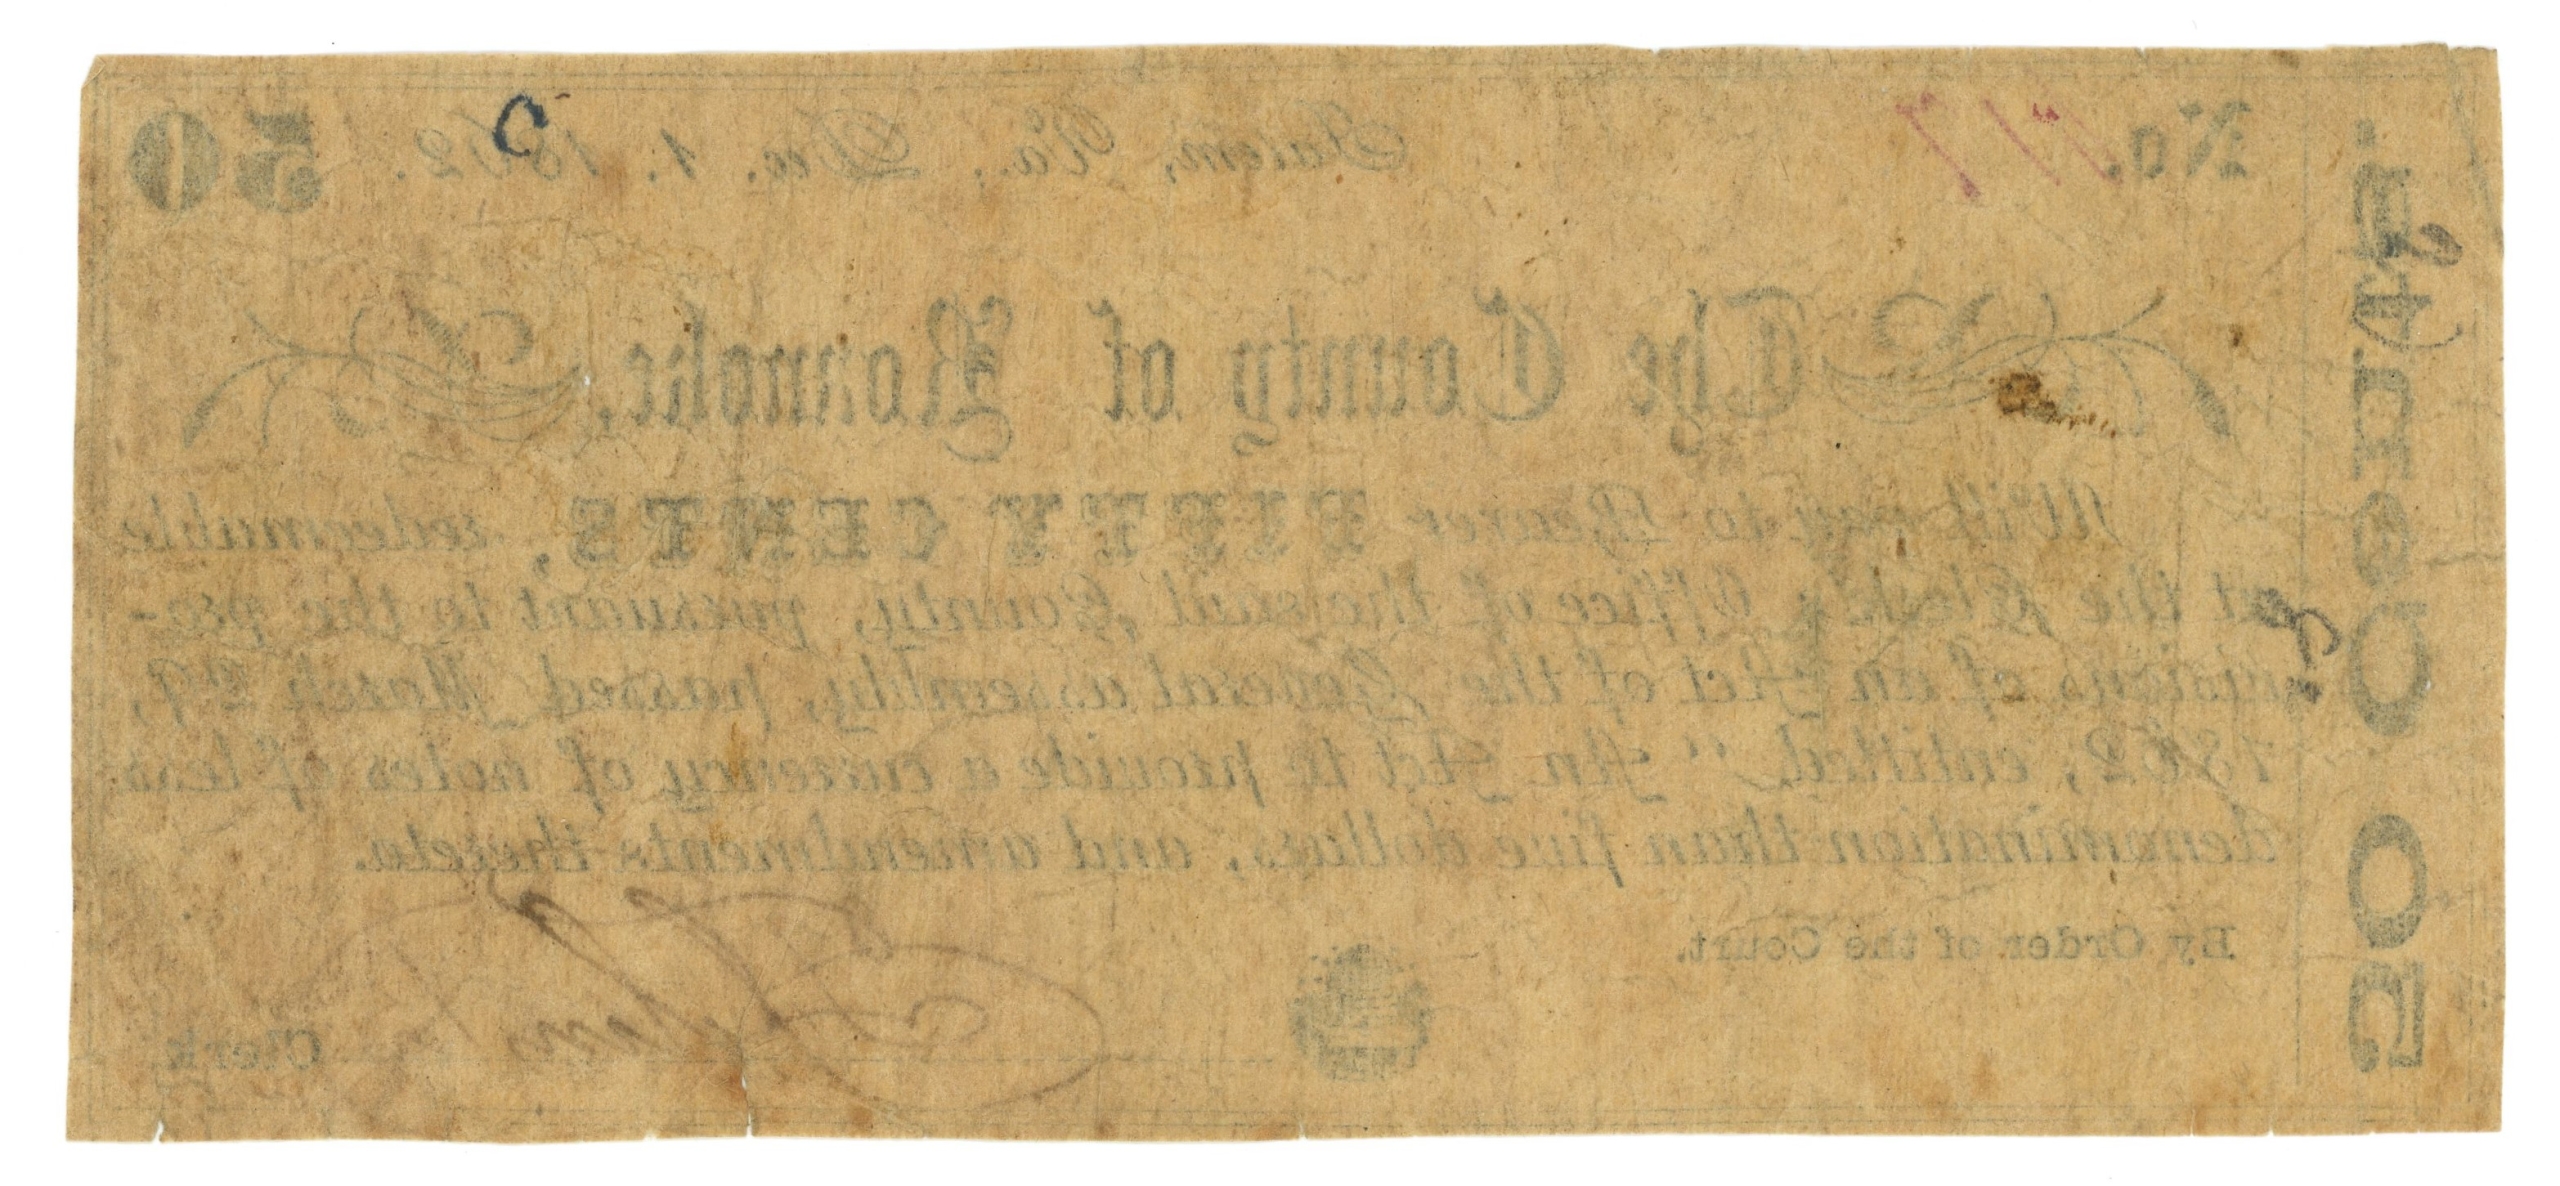 No. 717
Salem, Va., Dec. 1. 1862.
50
The County of Roanoke,
Will pay to Bearer FIFTY CENTS, redeemable
at the Clerk's Office of the said County, pursuant to the pro-
visions of an Act of the General assembly, passed March 29,
1862, entitled, "An Act to provide a currency of notes of less
denomination than five dollars, and amendments thereto.
By Order of the Court.
Clerk
50